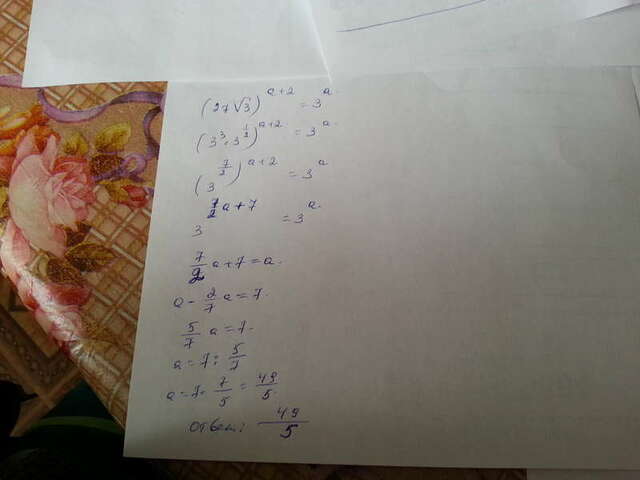 (27√3)^(a+2) = 3^a.
(3^3·3^(1/2))^(a+2) = 3^a.
(3^(7/2))^(a+2) = 3^a
3^(7/2 a+7) = 3^a.
7/2 a+7=a.
a - 2/7 a = 7.
5/7 a = 7.
a = 7 : 5/7
a = 7· 7/5 = 49/5.
ответ: 49/5